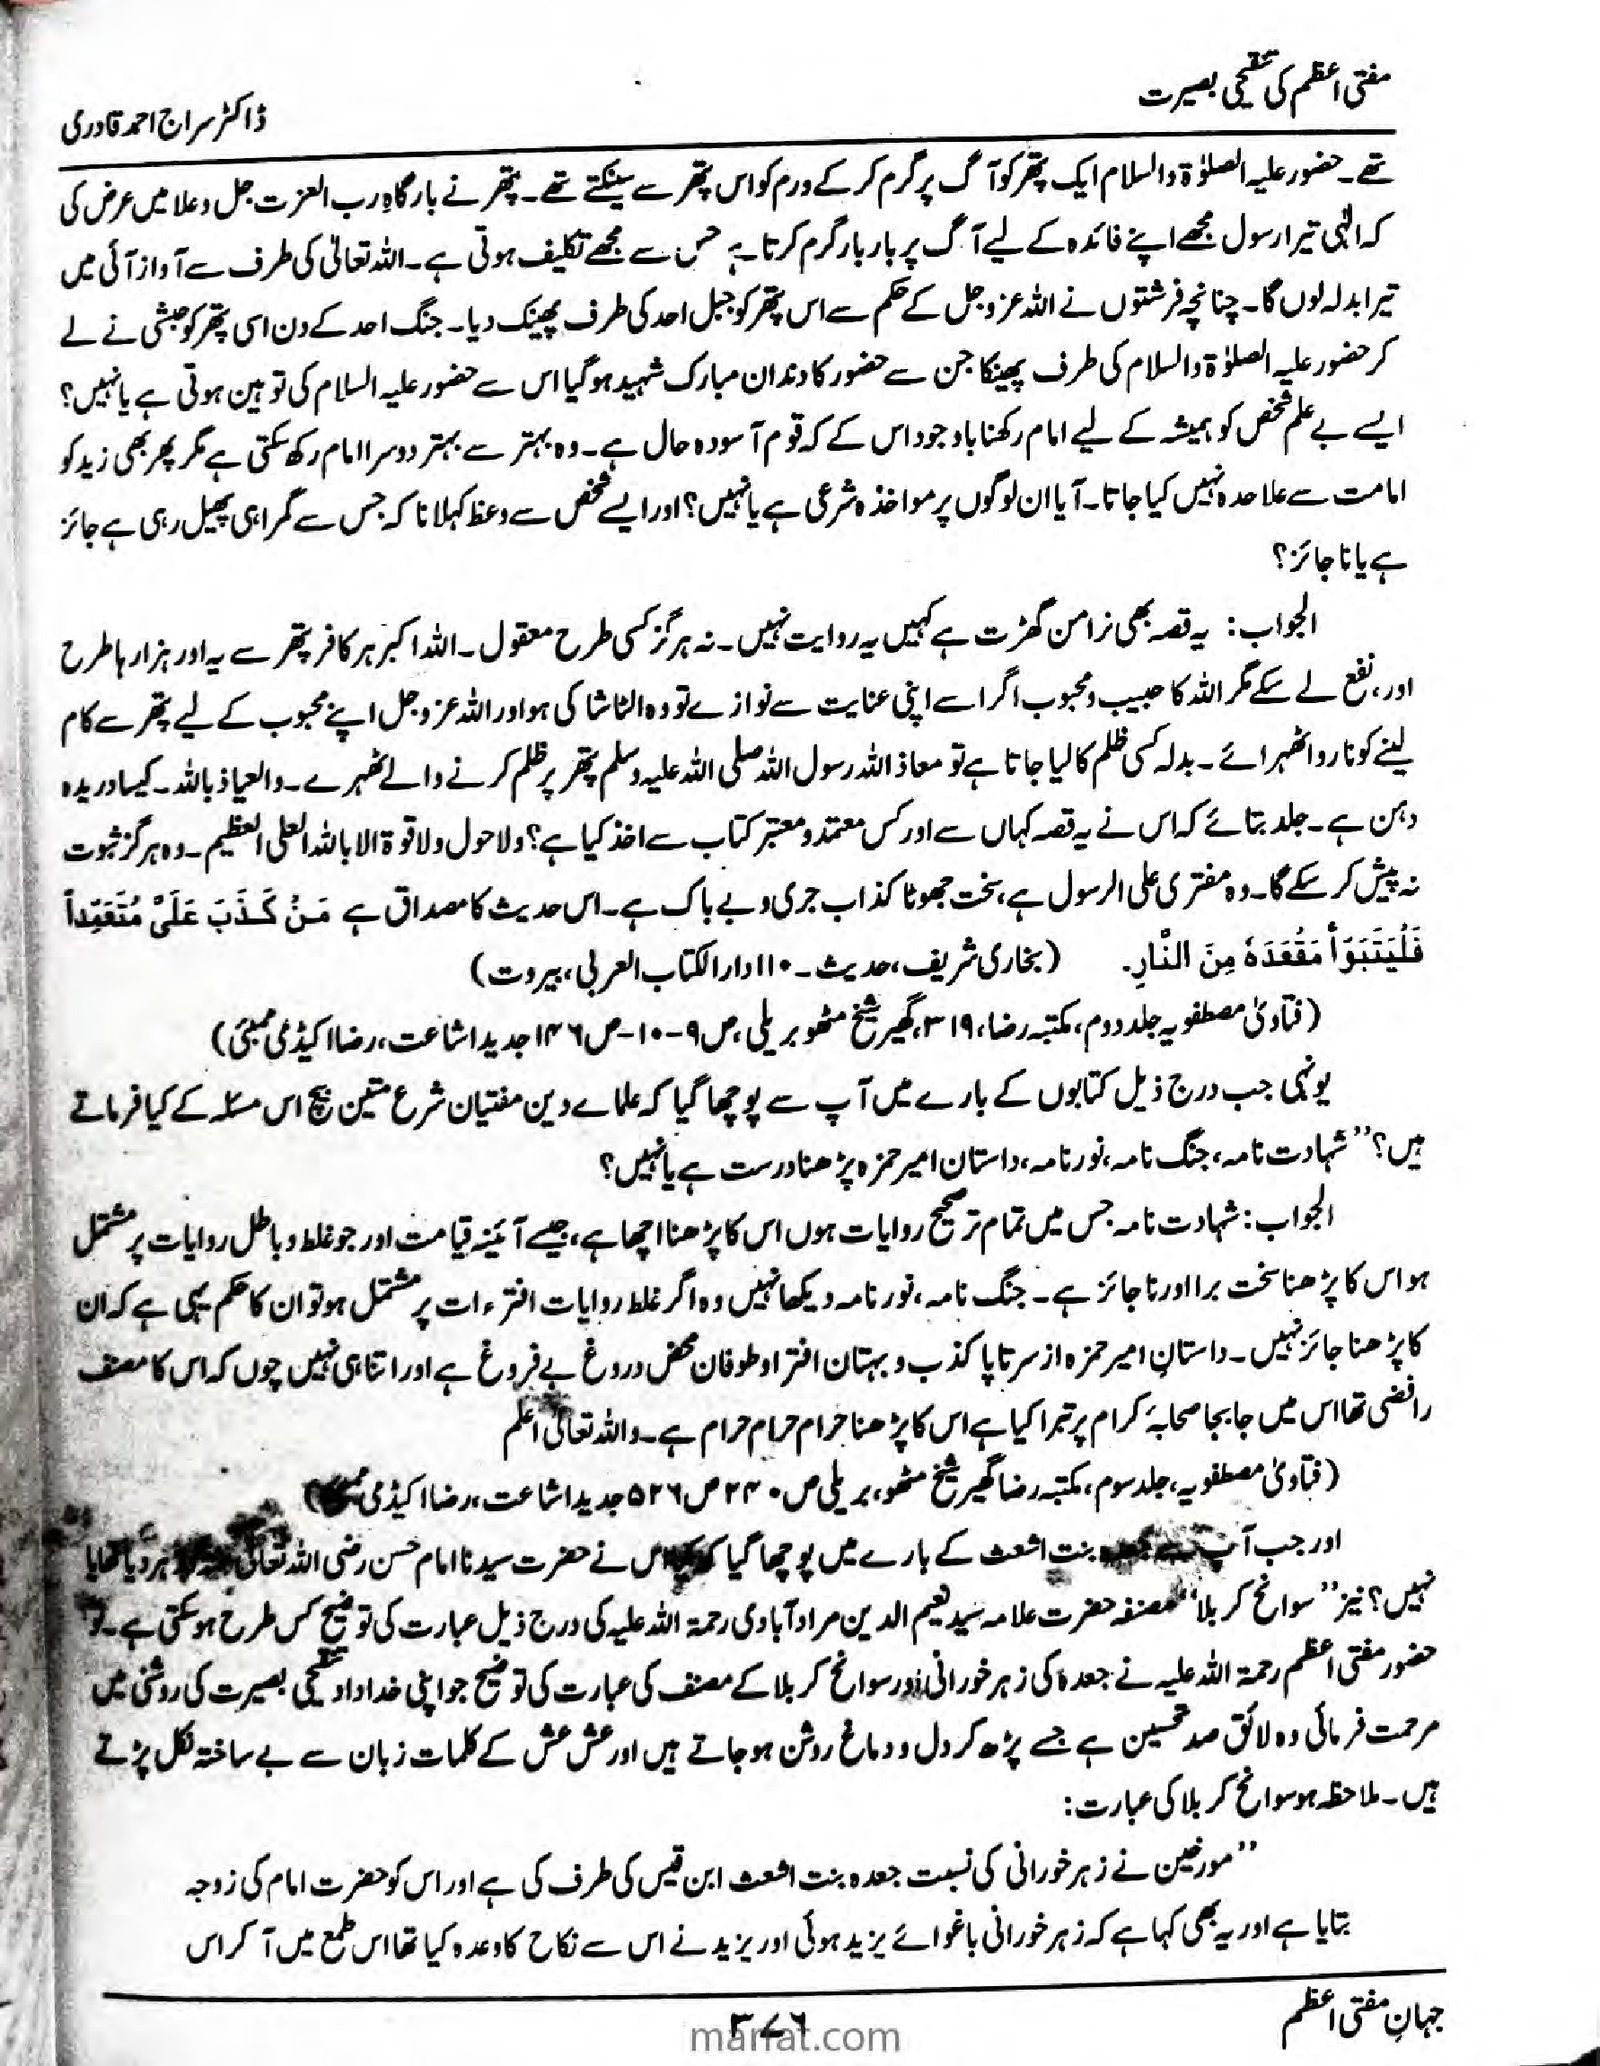 مفتی اعظم کی تنقیحی بصیرت
ڈاکٹر سراج احمد قادری
تھے۔ حضور علیہ الصلوٰۃ والسلام ایک پتھر کو آگ پر گرم کر کے ورم کو اس پتھر سے سینکتے تھے۔ پتھر نے بارگاہِ رب العزت جل وعلا میں عرض کی
کہ الٰہی تیرا رسول مجھے اپنے فائدہ کے لیے آگ پر بار بار گرم کرتا ہے جس سے مجھے تکلیف ہوتی ہے۔ اللہ تعالیٰ کی طرف سے آواز آئی میں
تیرا بدلہ لوں گا۔ چنانچہ فرشتوں نے اللہ عزوجل کے حکم سے اس پتھر کو جبل احد کی طرف پھینک دیا۔ جنگ احد کے دن اسی پتھر کو حبشی نے لے
کر حضور علیہ الصلوٰۃ والسلام کی طرف پھینکا جن سے حضور کا دندان مبارک شہید ہو گیا اس سے حضور علیہ السلام کی توہین ہوتی ہے یا نہیں؟
ایسے بے علم شخص کو ہمیشہ کے لیے امام رکھنا باوجود اس کے کہ قوم آسودہ حال ہے۔ وہ بہتر سے بہتر دوسرا امام رکھ سکتی ہے مگر پھر بھی زید کو
امامت سے علاحدہ نہیں کیا جاتا۔ آیا ان لوگوں پر مواخذہ شرعی ہے یا نہیں؟ اور ایسے شخص سے وعظ کہلانا کہ جس سے گمراہی پھیل رہی ہے جائز
ہے یا نا جائز؟
الجواب: یہ قصہ بھی نرا من گھڑت ہے کہیں یہ روایت نہیں۔ نہ ہرگز کسی طرح معقول۔ اللہ اکبر ہر کافر پتھر سے یہ اور ہزارہا طرح
اور، نفع لے سکے مگر اللہ کا حبیب و محبوب اگر اسے اپنی عنایت سے نوازے تو وہ الٹا شاکی ہو اور اللہ عزوجل اپنے محبوب کے لیے پتھر سے کام
لینے کو ناروا ٹھہرائے۔ بدلہ کسی ظلم کا لیا جاتا ہے تو معاذ اللہ رسول اللہ صلی اللہ علیہ وسلم پتھر پر ظلم کرنے والے ٹھہرے۔ والعیاذ باللہ۔ کیسا دریدہ
دہن ہے۔ جلد بتائے کہ اس نے یہ قصہ کہاں سے اور کس معتمد و معتبر کتاب سے اخذ کیا ہے؟ ولا حول ولا قوۃ الا باللہ العلی العظیم۔ وہ ہرگز ثبوت
نہ پیش کر سکے گا۔ وہ مفتری علی الرسول ہے، سخت جھوٹا کذاب جری و بے باک ہے۔ اس حدیث کا مصداق ہے مَنْ كَذَبَ عَلَيَّ مُتَعَمِّداً
فَلْيَتَبَوَّأْ مَقْعَدَهُ مِنَ النَّارِ. (بخاری شریف، حدیث۔ ۱۱۰ دار الکتاب العربی، بیروت)
(فتاویٰ مصطفویہ جلد دوم، مکتبہ رضا، ۳۱۹، گھیر شیخ مٹھو بریلی، ص ۹-۱۰- ص ۱۴۶ جدید اشاعت، رضا اکیڈمی ممبئی)
یونہی جب درج ذیل کتابوں کے بارے میں آپ سے پوچھا گیا کہ علماے دین مفتیان شرع متین بیچ اس مسئلہ کے کیا فرماتے
ہیں؟ ”شہادت نامہ، جنگ نامہ، نور نامہ، داستان امیر حمزہ پڑھنا درست ہے یا نہیں؟
الجواب: شہادت نامہ جس میں تمام تر صحیح روایات ہوں اس کا پڑھنا اچھا ہے، جیسے آئینہ قیامت اور جو غلط و باطل روایات پر مشتمل
ہو اس کا پڑھنا سخت برا اور نا جائز ہے۔ جنگ نامہ، نور نامہ دیکھا نہیں وہ اگر غلط روایات افتراءات پر مشتمل ہو تو ان کا حکم یہی ہے کہ ان
کا پڑھنا جائز نہیں۔ داستانِ امیر حمزہ از سرتاپا کذب و بہتان افترا و طوفان محض دروغ بے فروغ ہے اور اتنا ہی نہیں چوں کہ اس کا مصنف
رافضی تھا اس میں جا بجا صحابۂ کرام پر تبرا کیا ہے اس کا پڑھنا حرام حرام حرام ہے۔ واللہ تعالیٰ اعلم
(فتاویٰ مصطفویہ، جلد سوم، مکتبہ رضا گھیر شیخ مٹھو، بریلی ص ۲۴۰ ص ۵۲۶ جدید اشاعت، رضا اکیڈمی
اور جب آپ سے جعدہ بنت اشعث کے بارے میں پوچھا گیا کہ اس نے حضرت سیدنا امام حسن رضی اللہ تعالیٰ زہر دیا تھا یا
نہیں؟ نیز ”سوانح کربلا“ مصنفہ حضرت علامہ سید نعیم الدین مرادآبادی رحمۃ اللہ علیہ کی درج ذیل عبارت کی توضیح کس طرح ہو سکتی ہے۔ تو
حضور مفتی اعظم رحمۃ اللہ علیہ نے جعدہ کی زہر خورانی اور سوانح کربلا کے مصنف کی عبارت کی توضیح جو اپنی خداداد تنقیحی بصیرت کی روشنی میں
مرحمت فرمائی وہ لائق صد تحسین ہے جسے پڑھ کر دل و دماغ روشن ہو جاتے ہیں اور عش عش کے کلمات زبان سے بے ساختہ نکل پڑتے
ہیں۔ ملاحظہ ہو سوانح کربلا کی عبارت:
”مورخین نے زہر خورانی کی نسبت جعدہ بنت اشعث ابن قیس کی طرف کی ہے اور اس کو حضرت امام کی زوجہ
بتایا ہے اور یہ بھی کہا ہے کہ زہر خورانی باغوائے یزید ہوئی اور یزید نے اس سے نکاح کا وعدہ کیا تھا اس طمع میں آ کر اس
جہانِ مفتی اعظم
۳۷۶
marfat.com